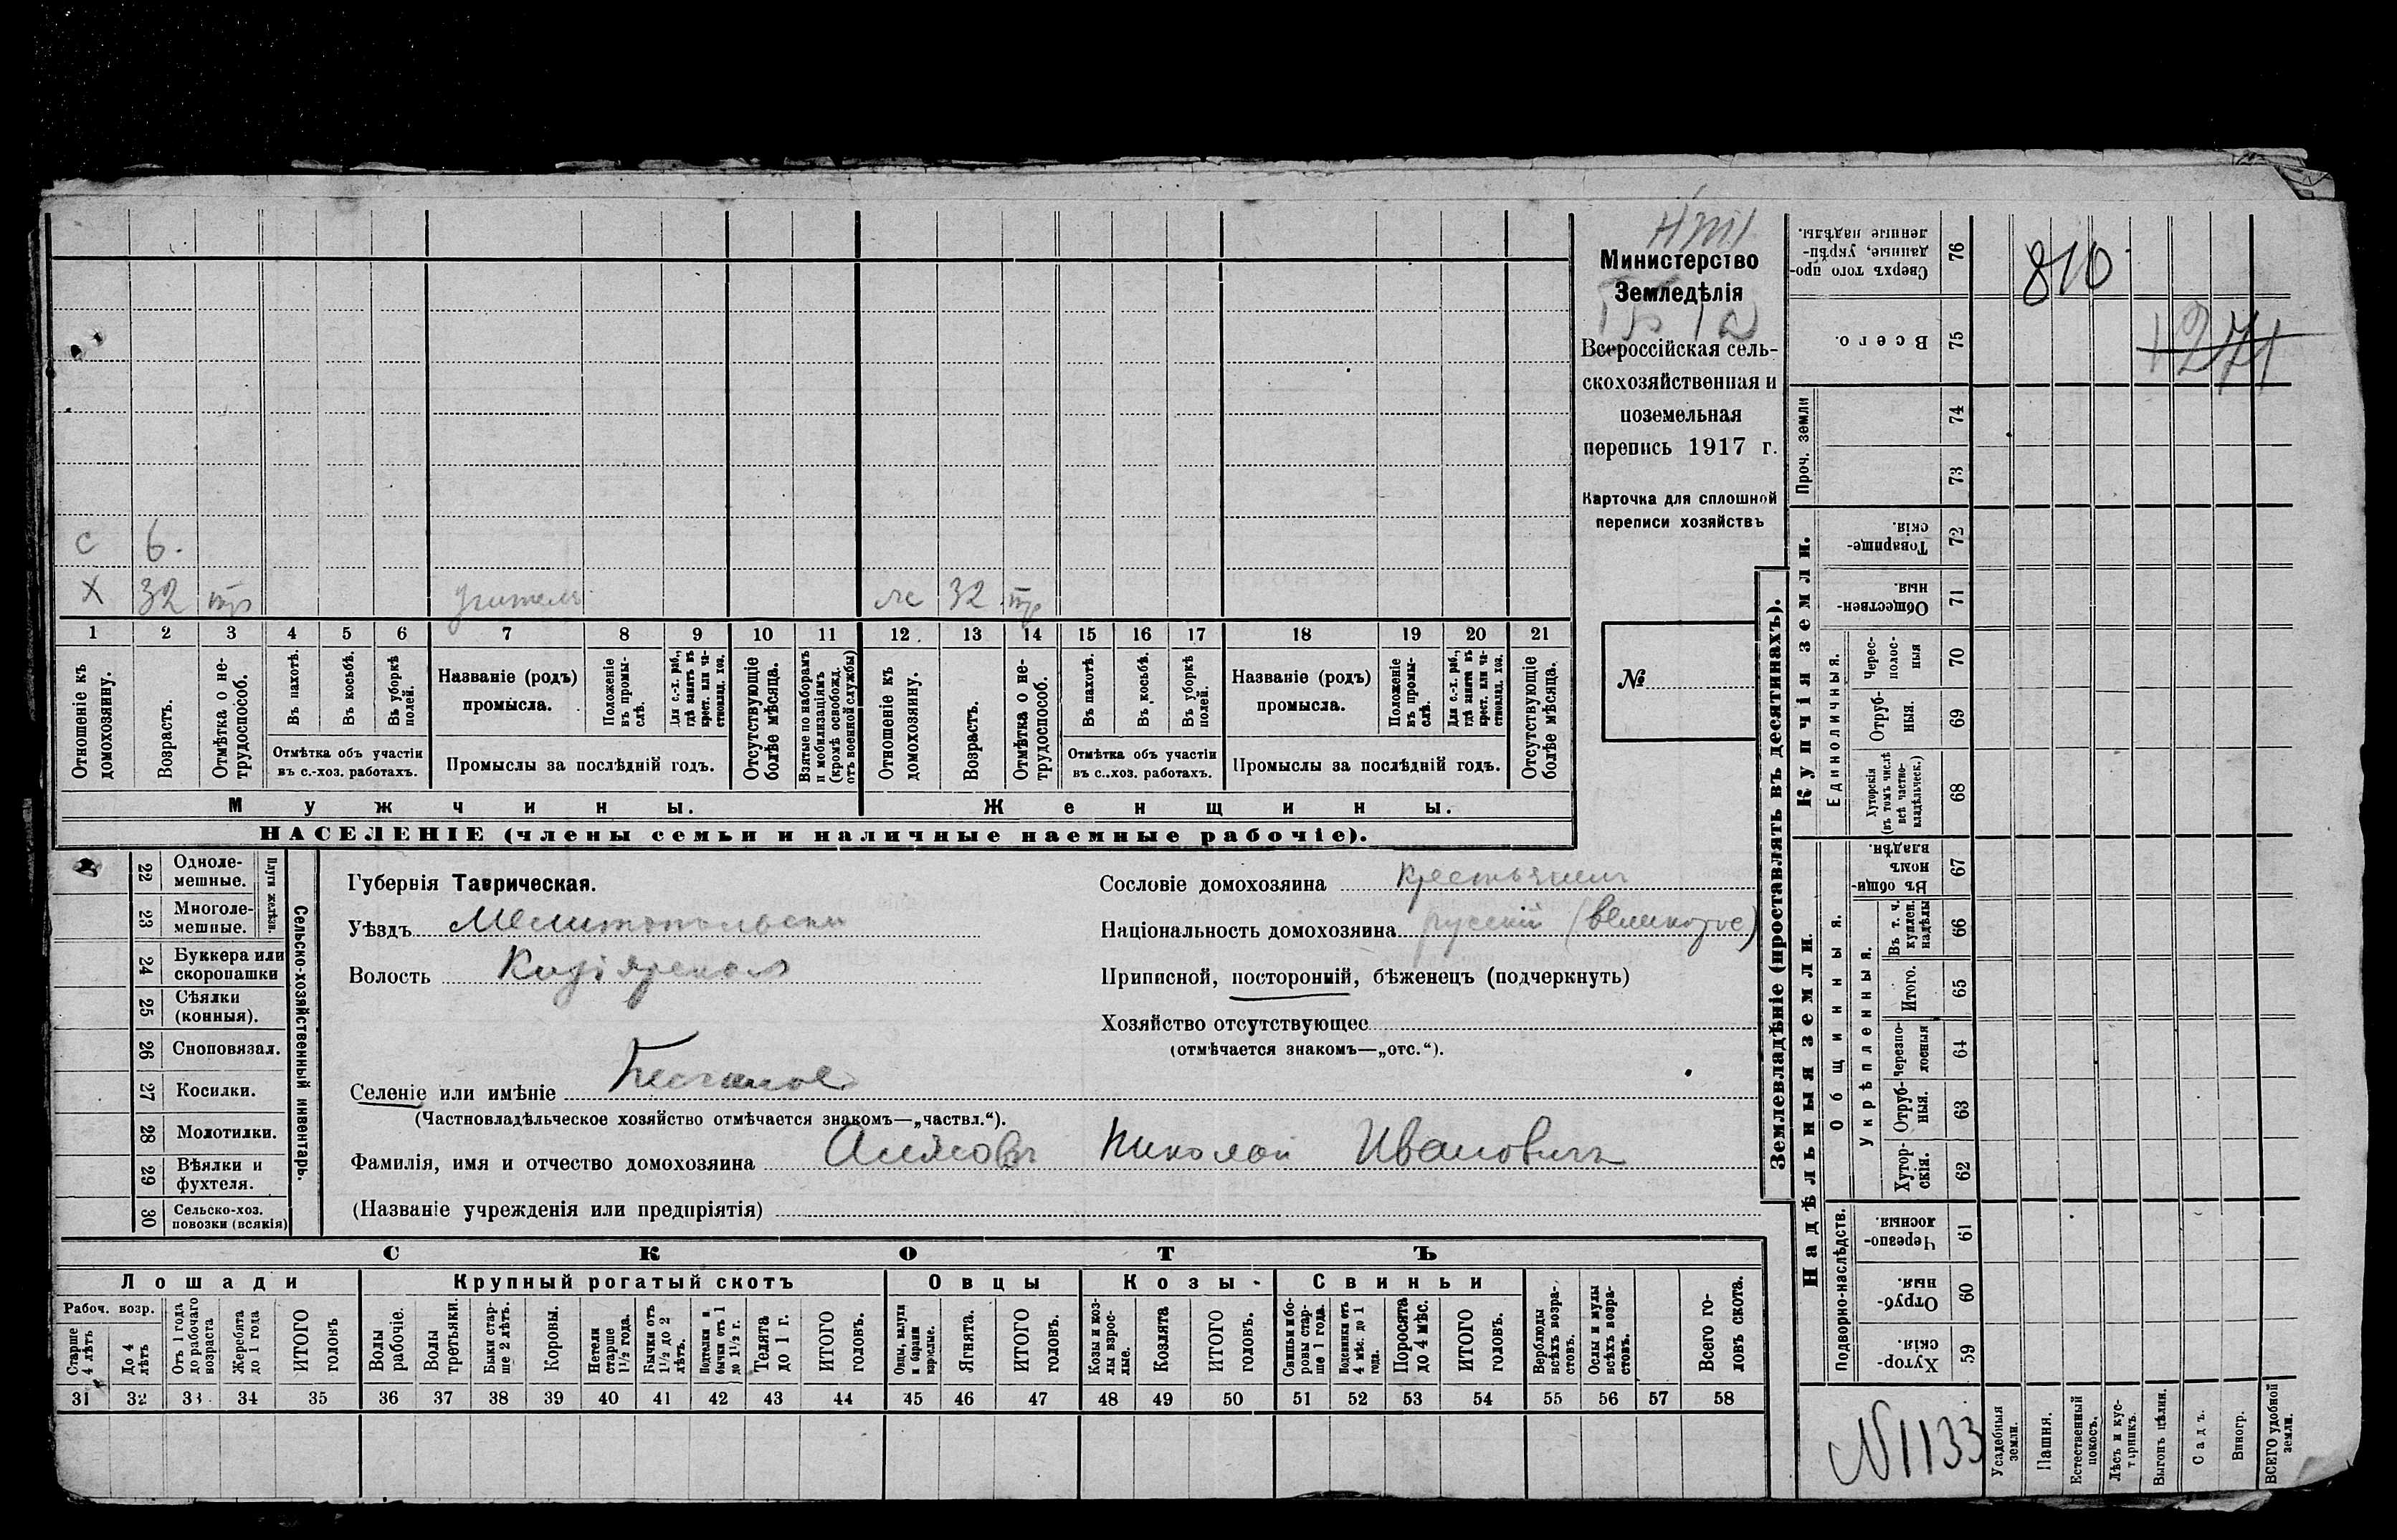 Министерство
Земледѣлія
Всероссійская сель-
скохозяйственная и
поземельная
перепись 1917 г.
Карточка для сплошной
переписи хозяйствъ
№
с 6.
х 32 тр учитель ж 32 тр
1 2 3 4 5 6 7 8 9 10 11 12. 13 14 15 16 17 18 19 20 21
Отношеніе къ домохозяину.
Возрастъ.
Отмѣтка о не-трудоспособ.
Въ пахотѣ.
Въ косьбѣ.
Въ уборкѣ полей.
Отмѣтка объ участіи
въ с.-хоз. работахъ.
Названіе (родъ)
промысла.
Положеніе въ промы-слѣ.
Для с.-х. раб., гдѣ занятъ въ крест. или ча-стновлад. хоз.
Промыслы за послѣдній годъ.
Отсутствующіе болѣе мѣсяца.
Взятые по наборамъ и мобилизаціямъ (кромѣ освобожд. отъ военной службы)
Отношеніе къ домохозяину.
Возрастъ.
Отмѣтка о не-трудоспособ.
Въ пахотѣ.
Въ косьбѣ.
Въ уборкѣ полей.
Отмѣтка объ участіи
въ с.-хоз. работахъ.
Названіе (родъ)
промысла.
Положеніе въ промы-слѣ.
Для с.-х. раб., гдѣ занята въ крест. или ча-стновлад. хоз.
Промыслы за послѣдній годъ.
Отсутствующіе болѣе мѣсяца.
Мужчины.
Женщины.
НАСЕЛЕНІЕ (члены семьи и наличные наемные рабочіе).
22 Одноле-мешные.
23 Многоле-мешные.
Плуги желѣзн.
24 Буккера или скоропашки
25 Сѣялки (конныя).
26 Сноповязал.
27 Косилки.
28 Молотилки.
29 Вѣялки и фухтеля.
30 Сельско-хоз. повозки (всякія)
Сельско-хозяйственный инвентарь.
Губернія Таврическая.
Уѣздъ Мелитопольскій
Волость
Селеніе или имѣніе
(Частновладѣльческое хозяйство отмѣчается знакомъ—„частвл.“).
Фамилія, имя и отчество домохозяина Николай Ивановичъ
(Названіе учрежденія или предпріятія)
Сословіе домохозяина крестьянинъ
Національность домохозяина русскій (великорос)
Приписной, посторонній, бѣженецъ (подчеркнуть)
Хозяйство отсутствующее
(отмѣчается знакомъ—„отс.“).
СКОТЪ
Лошади
Крупный рогатый скотъ
Овцы
Козы
Свиньи
Рабоч. возр.
Старше 4 лѣтъ
До 4 лѣтъ
Отъ 1 года до рабочаго возраста
Жеребята до 1 года
ИТОГО головъ
Волы рабочіе.
Волы третьяки.
Быки стар-ше 2 лѣтъ.
Коровы.
Нетели старше 1½ года.
Бычки отъ 1½ до 2 лѣтъ.
Подтелки и бычки отъ 1 до 1½ г.
Телята до 1 г.
ИТОГО головъ.
Овцы, валухи и бараны взрослые.
Ягнята.
ИТОГО головъ.
Козы и коз-лы взрос-лые.
Козлята
ИТОГО головъ.
Свиньи и бо-ровы стар-ше 1 года.
Подсвинки отъ 4 мѣс. до 1 года.
Поросята до 4 мѣс.
ИТОГО головъ.
Верблюды всѣхъ возра-стовъ.
Ослы и мулы всѣхъ возра-стовъ.
Всего го-ловъ скота.
31 32 33 34 35 36 37 38 39 40 41 42 43 44 45 46 47 48 49 50 51 52 53 54 55 56 57 58
Землевладѣніе (проставлять въ десятинахъ).
Сверхъ того про-данные, укрѣп-ленные надѣлы. 76
810
Всего. 75
1271
Проч. земли 74
73
Купчія земли.
Товарище-скія. 72
Обществен-ныя. 71
Единоличныя.
Черес-полос-ныя 70
Отруб-ныя. 69
Хуторскія (въ томъ числѣ всѣ частно-владѣльческ.) 68
Надѣльныя земли.
Общинныя.
Въ общи-номъ владѣн. 67
Укрѣпленныя.
Въ т. ч. куплен. надѣлы 66
Итого. 65
Черезпо-лосныя 64
Отруб-ныя. 63
Хутор-скія. 62
Подворно-наслѣдств.
Черезпо-лосныя. 61
Отруб-ныя. 60
Хутор-скія 59
N 1133
Усадебныя земли.
Пашня.
Естественный покосъ.
Лѣсъ и кус-тарникъ.
Выгонъ цѣлин.
Садъ.
Виногр.
ВСЕГО удобной земли.